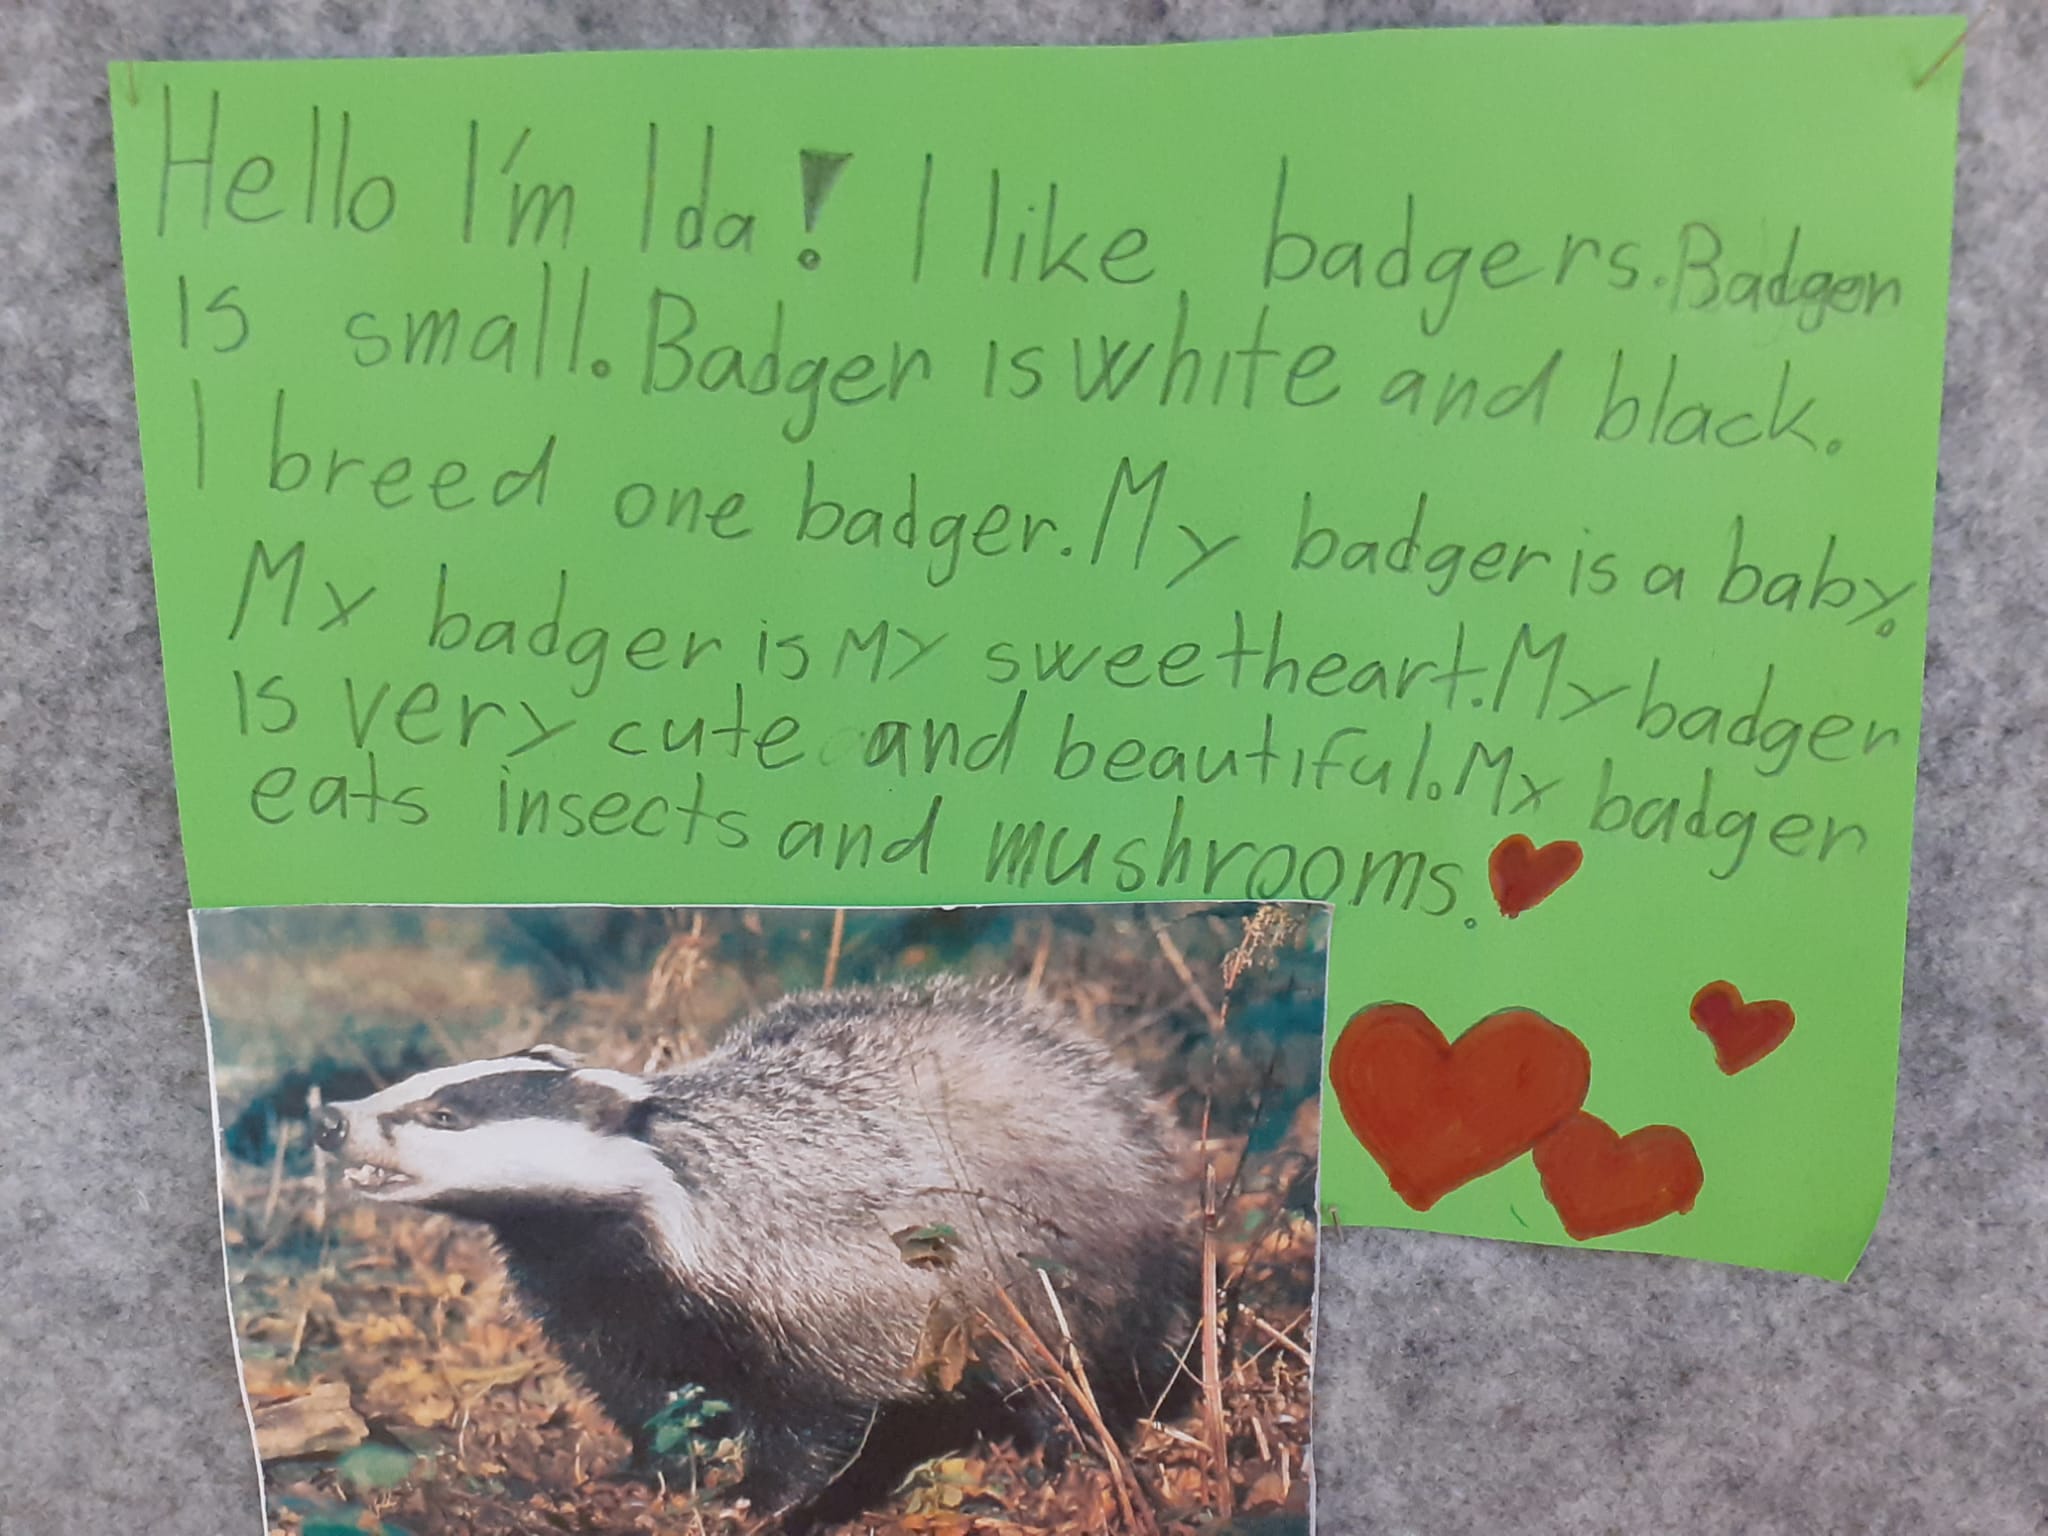 Hello I'm Ida! I like badgers. Badger
is small. Badger is white and black.
I breed one badger. My badger is a baby.
My badger is my sweetheart. My badger
is very cute and beautiful. My badger
eats insects and mushrooms.